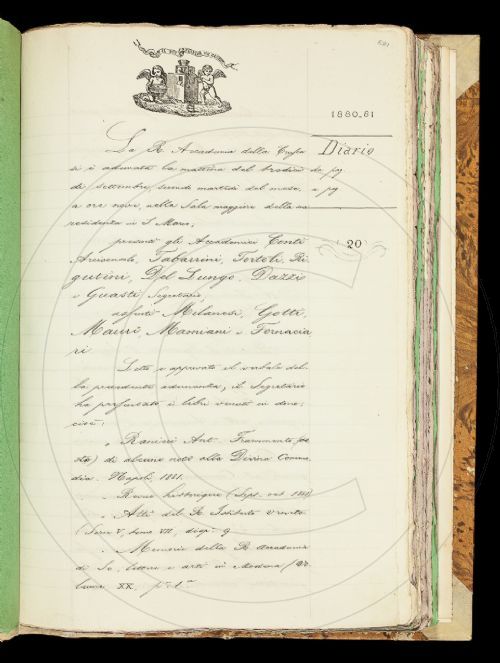 1880-81
Diario
La R. Accademia della Crusca
si è adunata la mattina del tredici
di settembre, secondo martedì del mese,
a ore nove, nella Sala maggiore della sua
residenza in S. Marco;
da pag
a pag
20
presenti gli Accademici Conti
Arciconsolo, Tabarrini, Tortoli, Ri
gutini, Del Lungo, Dazzi
e Guasti, Segretario;
assenti Milanesi, Gotti,
Mauri, Mamiani e Fornacia
ri
Letto e approvato il verbale del
la precedente adunanza, il Segretario
ha presentato i libri venuti in dono;
cioè:
Ranieri Ant. Frammento
di alcune note alla Divina Comme
dia. Napoli, 1881.
Revue historique (Sept. oct. 1881)
Atti del R. Istituto Veneto
(Serie V, tomo VII, disp. 9
Memorie della R. Accademia
di Sc., lettere e arti in Modena (Vo
lume XX, p. 1ª